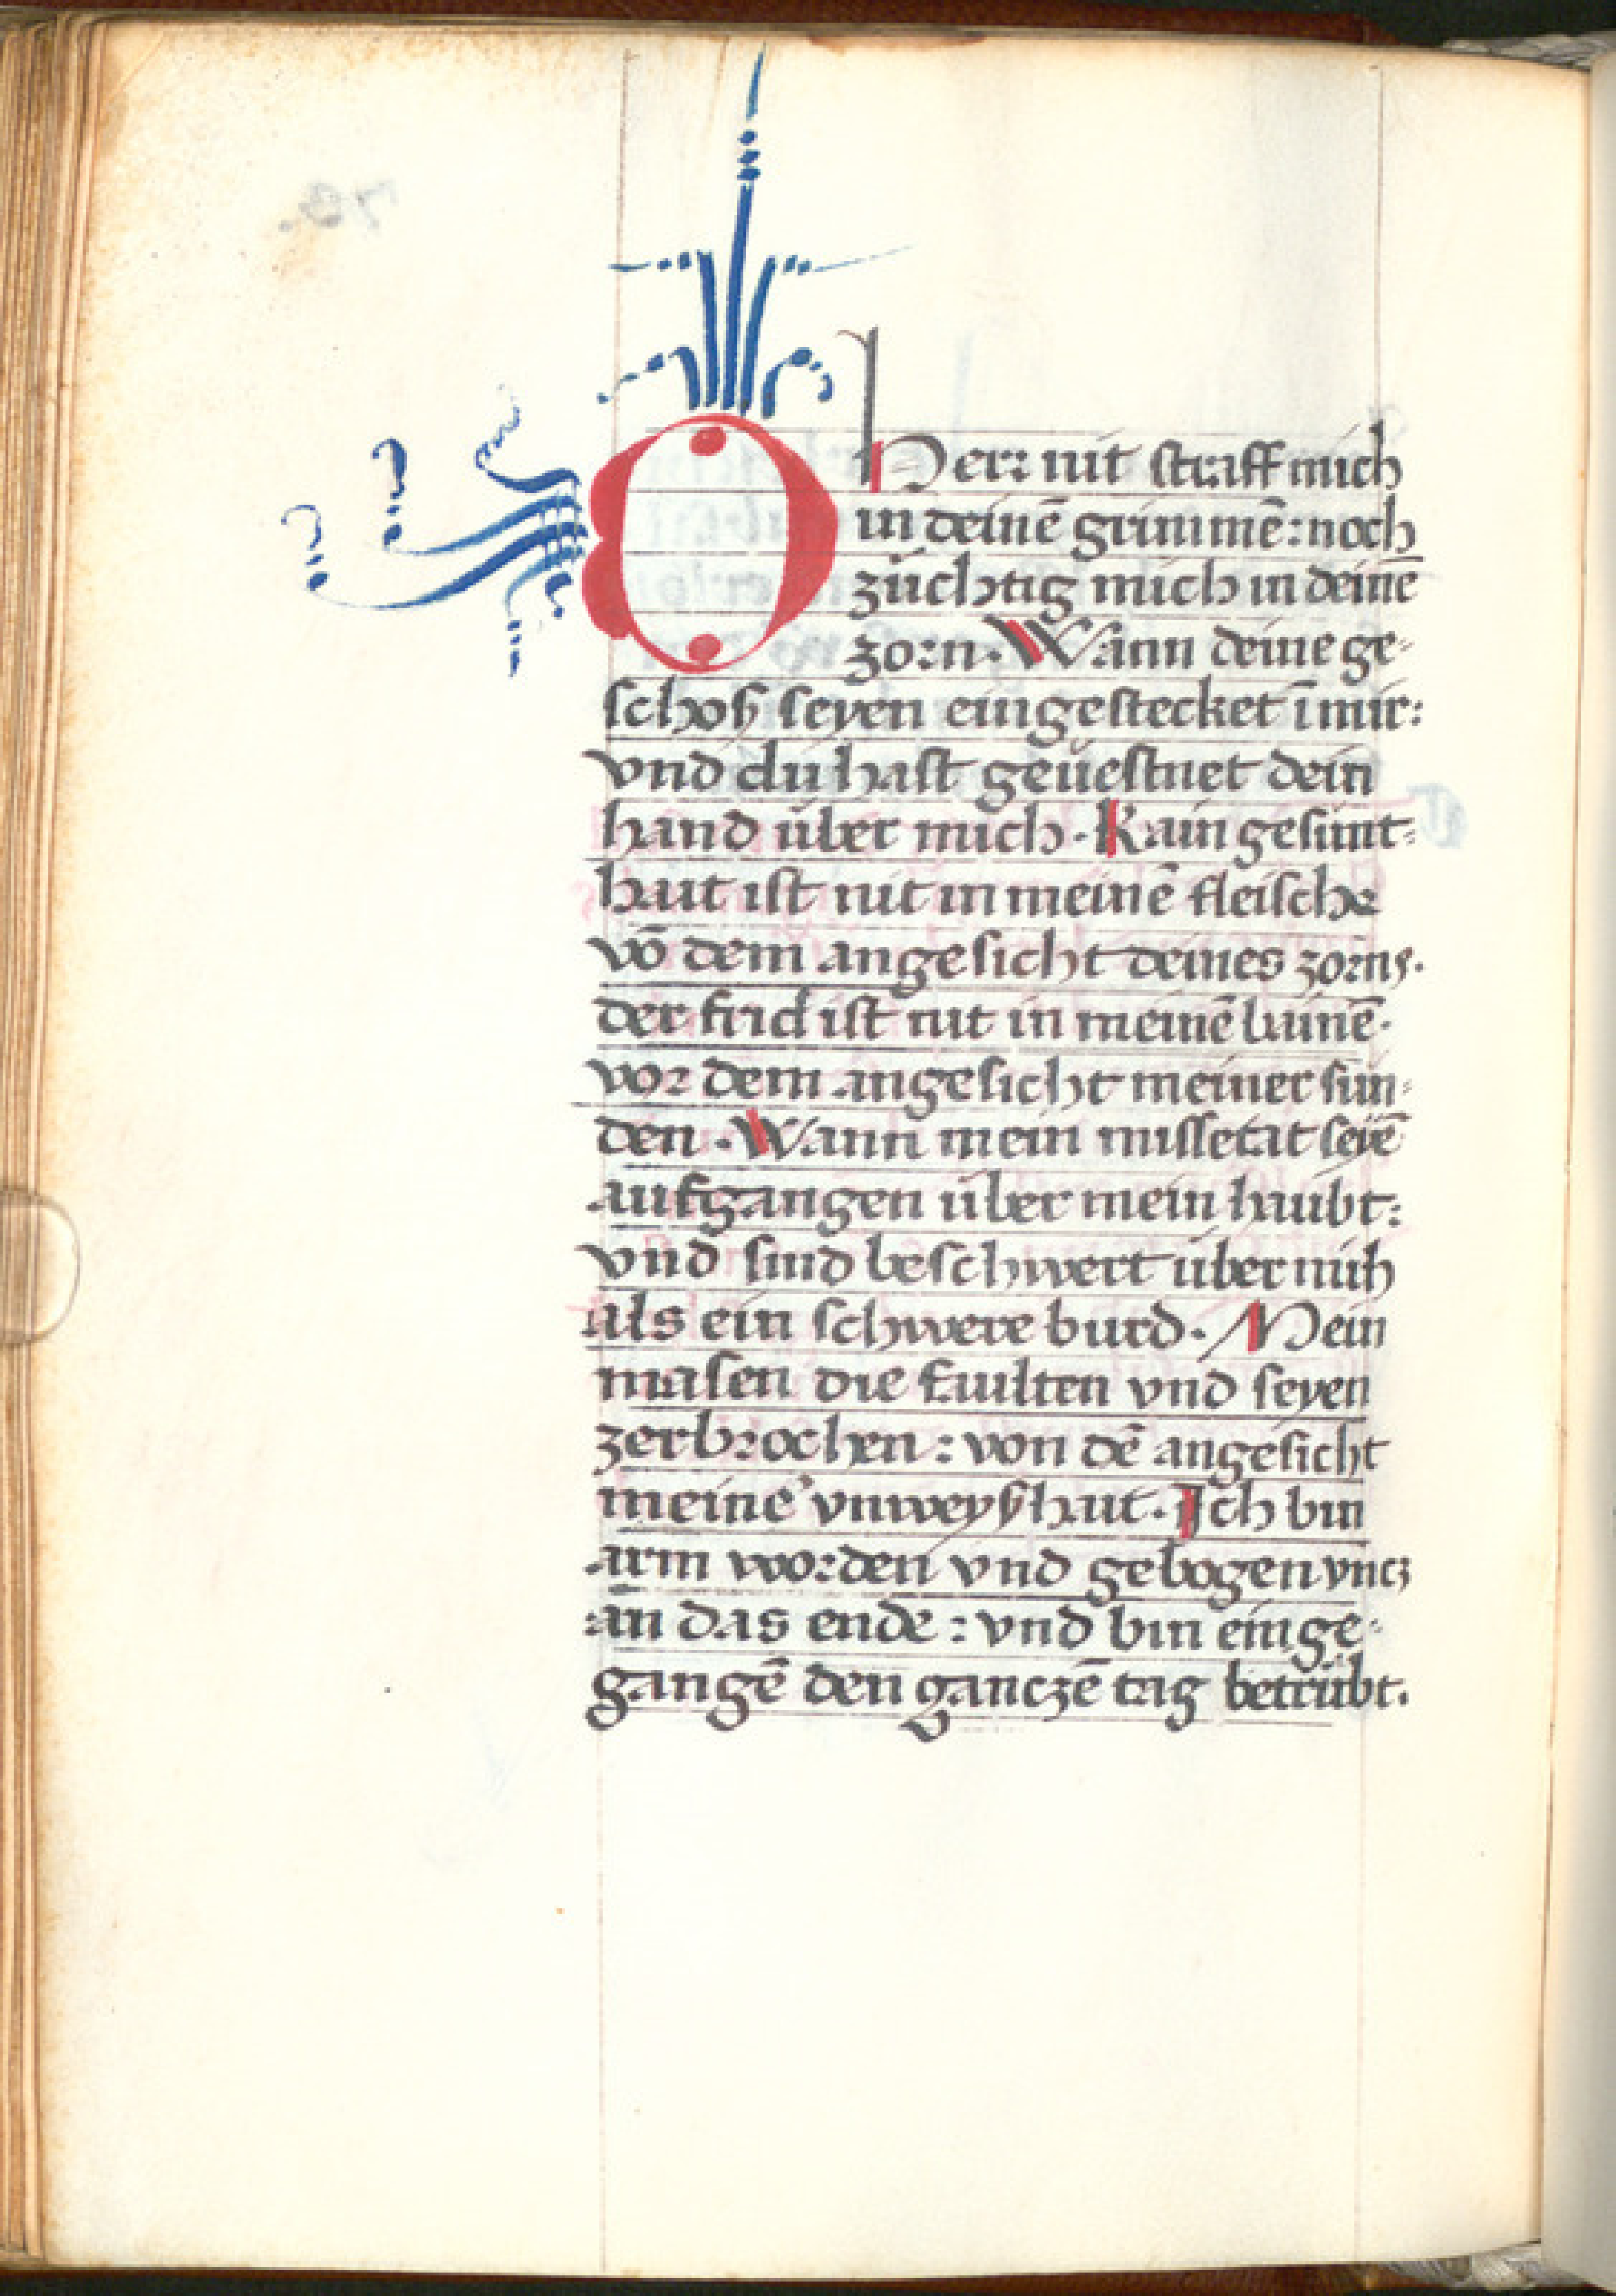 O Herr nit straff mich
in deinē grimmē: noch
züchtig mich in deinē
zorn. Wann deine ge-
schoß seyen eingestecket ī mir:
vnd du hast geuestnet dein
hand über mich. Kain gesunt-
hait ist nit in meinē fleische
vō dem angesicht deines zorns.
der frid ist nit in meinē bainē.
vor dem angesicht meiner sün-
den. Wann mein missetat seyē
aufgangen über mein haubt:
vnd sind beschwert über mich
als ein schwere burd. Mein
masen die faulten vnd seyen
zerbrochen: von dē angesicht
meine' vnweyßhait. Ich bin
arm worden vnd gebogen vncz
an das ende: vnd bin einge-
gangē den ganczē tag betrübt.